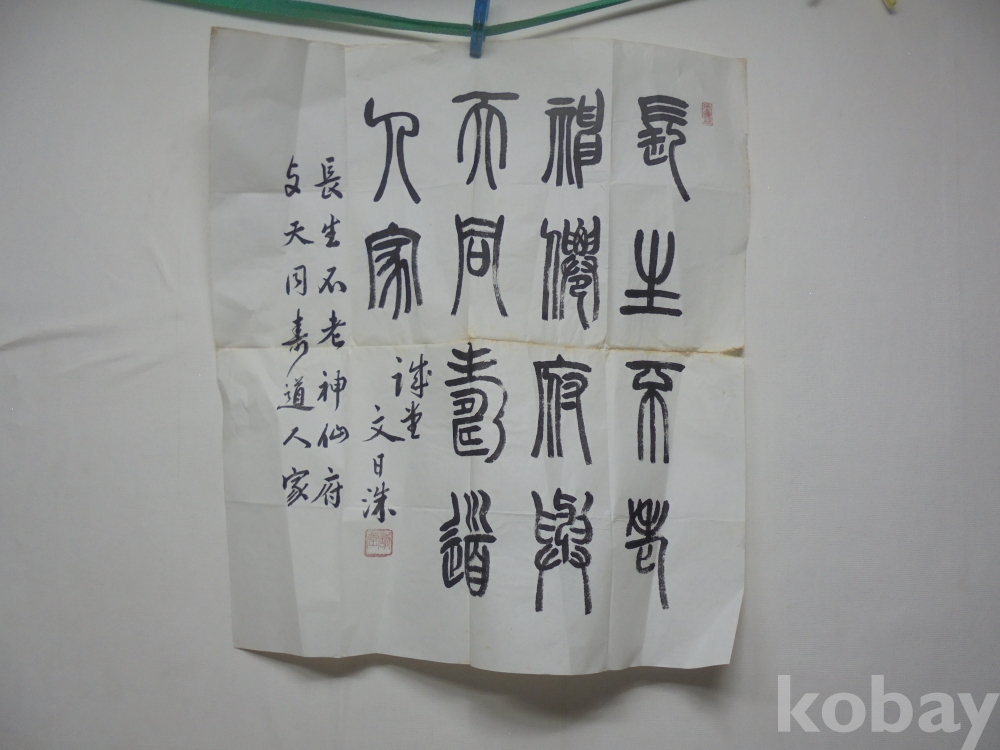 長生不老
神僊府與
天同壽道
人家
誠堂
文日洙
長生不老神仙府
与天同寿道人家
kobay